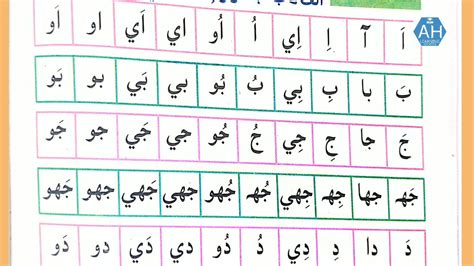 AH
اَ آ اِ اِي اُ اُو اي اَي او اَو
بَ با بِ بِي بُ بُو بي بَي بو بَو
جَ جا جِ جِي جُ جُو جي جَي جو جَو
جَهہ جها جِهہ جِهي جُهہ جُهو جهي جَهي جهو جَهو
دَ دا دِ دِي دُ دُو دي دَي دو دَو